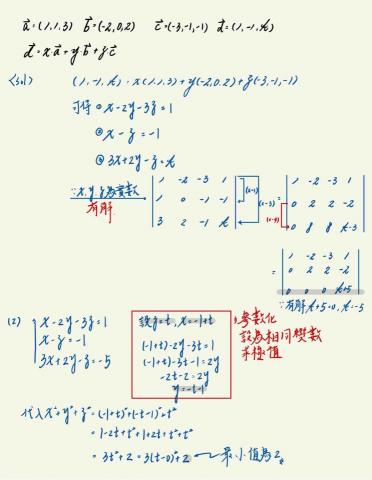 a⃗=(1,1,3) b⃗=(-2,0,2) c⃗=(-3,-1,-1) d⃗=(1,-1,k)
d⃗=xa⃗+yb⃗+zc⃗
<sol> (1,-1,k)=x(1,1,3)+y(-2,0,2)+z(-3,-1,-1)
可得 ① x-2y-3z=1
② x-z=-1
③ 3x+2y-z=k
∵x,y,z為實數
有解
1 -2 -3 1
1 0 -1 -1
3 2 -1 k
x(-1)
x(-3)
=
1 -2 -3 1
0 2 2 -2
0 8 8 k-3
x(-4)
=
1 -2 -3 1
0 2 2 -2
0 0 0 k+5
∵有解 k+5=0, k=-5
(2)
x-2y-3z=1
x-z=-1
3x+2y-z=-5
設z=t, x=-1+t
(-1+t)-2y-3t=1
(-1+t)-3t-1=2y
-2t-2=2y
y=-t-1
參數化
設為相同變數
求極值
代入x²+y²+z²=(-1+t)²+(-t-1)²+t²
=1-2t+t²+1+2t+t²+t²
=3t²+2=3(t-0)²+2 最小值為2